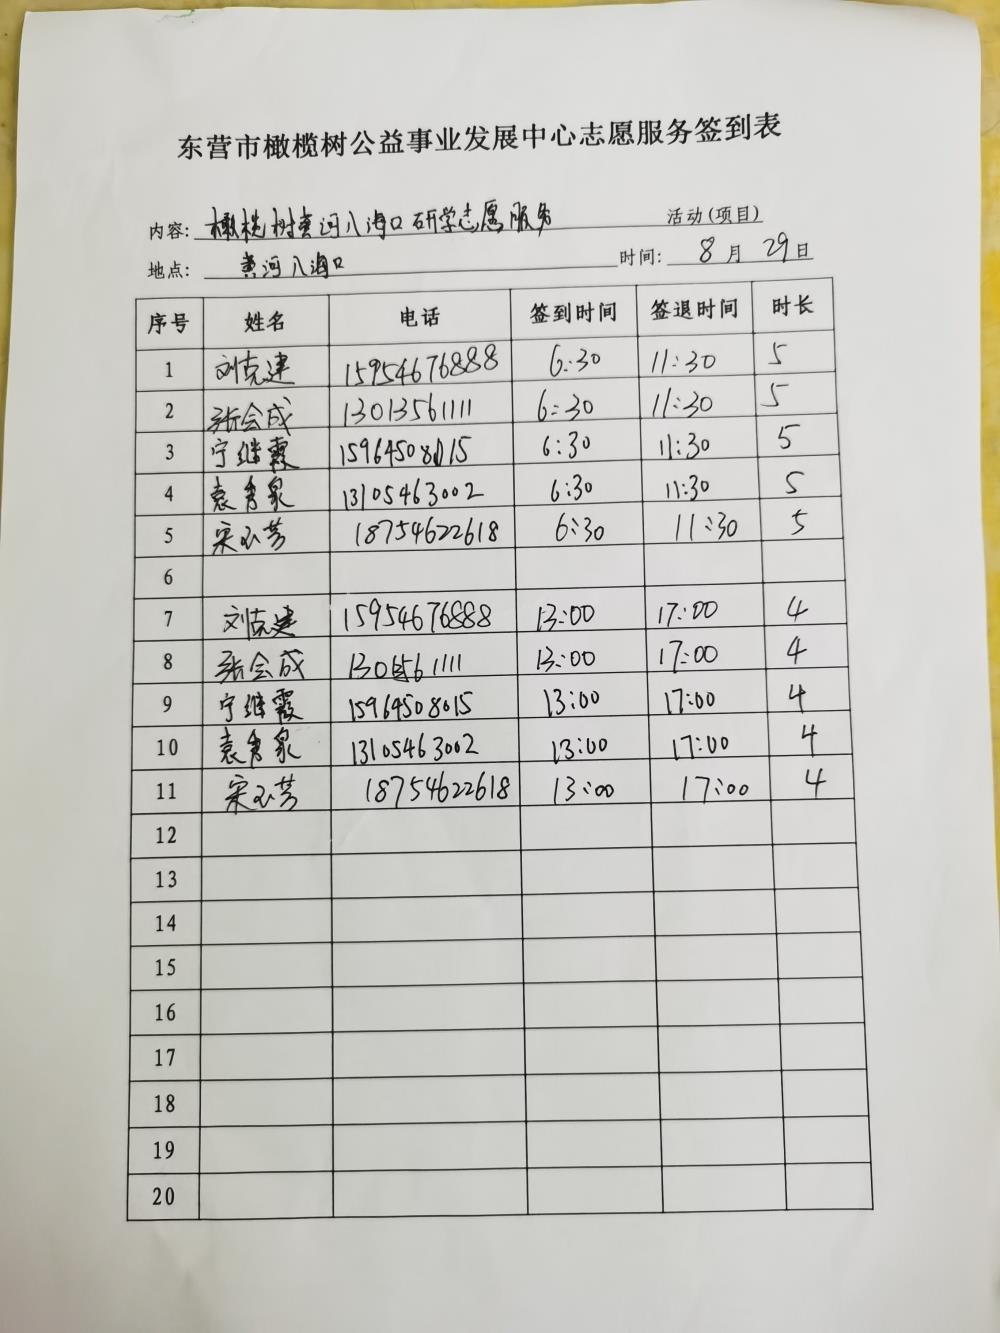 东营市橄榄树公益事业发展中心志愿服务签到表
内容: 橄榄树黄河入海口研学志愿服务 活动(项目)
地点: 黄河入海口 时间: 8月29日
序号 姓名 电话 签到时间 签退时间 时长
1 刘克建 15954676888 6:30 11:30 5
2 张会成 13013561111 6:30 11:30 5
3 宁继霞 15964508015 6:30 11:30 5
4 袁秀泉 13105463002 6:30 11:30 5
5 宋玉芳 18754622618 6:30 11:30 5
6
7 刘克建 15954676888 13:00 17:00 4
8 张会成 13:00 17:00 4
9 宁继霞 15964508015 13:00 17:00 4
10 袁秀泉 13105463002 13:00 17:00 4
11 宋玉芳 18754622618 13:00 17:00 4
12
13
14
15
16
17
18
19
20